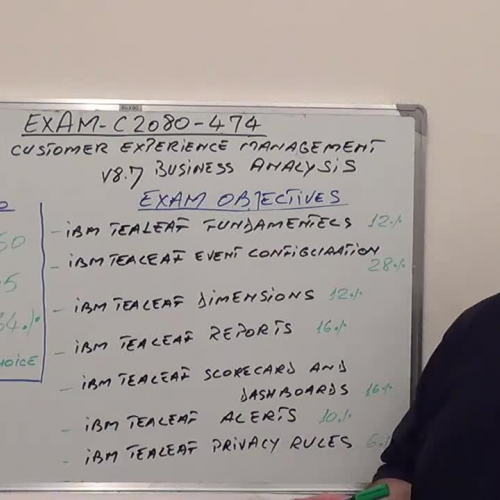 EXAM-C2080-474
CUSTOMER EXPERIENCE MANAGEMENT
V8.7 BUSINESS ANALYSIS
EXAM OBJECTIVES
- IBM TEALEAF FUNDAMENTELS 12%
- IBM TEALEAF EVENT CONFIGURATION
28%
- IBM TEALEAF DIMENSIONS 12%
- IBM TEALEAF REPORTS 16%
- IBM TEALEAF SCORECARD AND
DASHBOARDS 16%
- IBM TEALEAF ALERTS 10%
- IBM TEALEAF PRIVACY RULES 6%